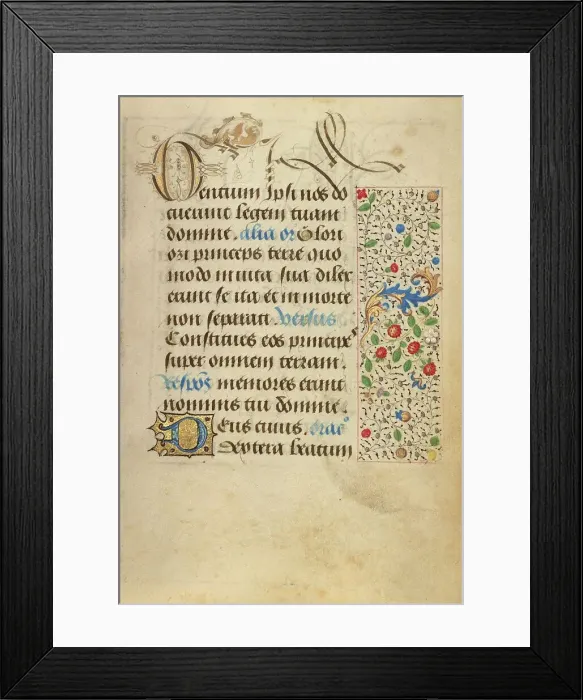 Gentium ipsi nos do
cuerunt legem tuam
domine. alia or Glori
osi principes terre quo
modo in vita sua dilex
erunt se ita et in morte
non separati. versus
Constitues eos principes
super omnem terram.
respons memores erunt
nominis tui domine.
Deus cuius. orac
dextera beatum